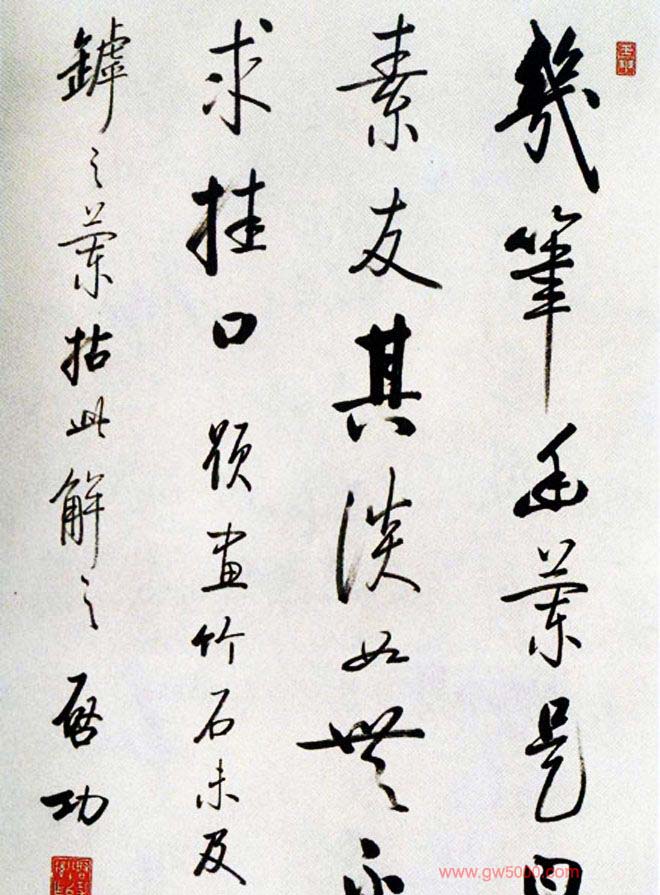 幾筆幽蘭是
素友其淡如無
求挂口 題畫竹石未及
罅之蘭拈此解之 啓功
www.gw5000.com